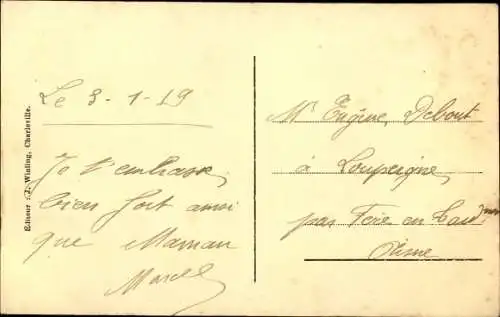 Le 3-1-19
Je t'embrasse
bien fort ainsi
que Maman
Marcel
Editeur : J. Winling, Charleville.
Mr Eugène Debout
à Loupeigne
par Fère en Tardenois
Aisne